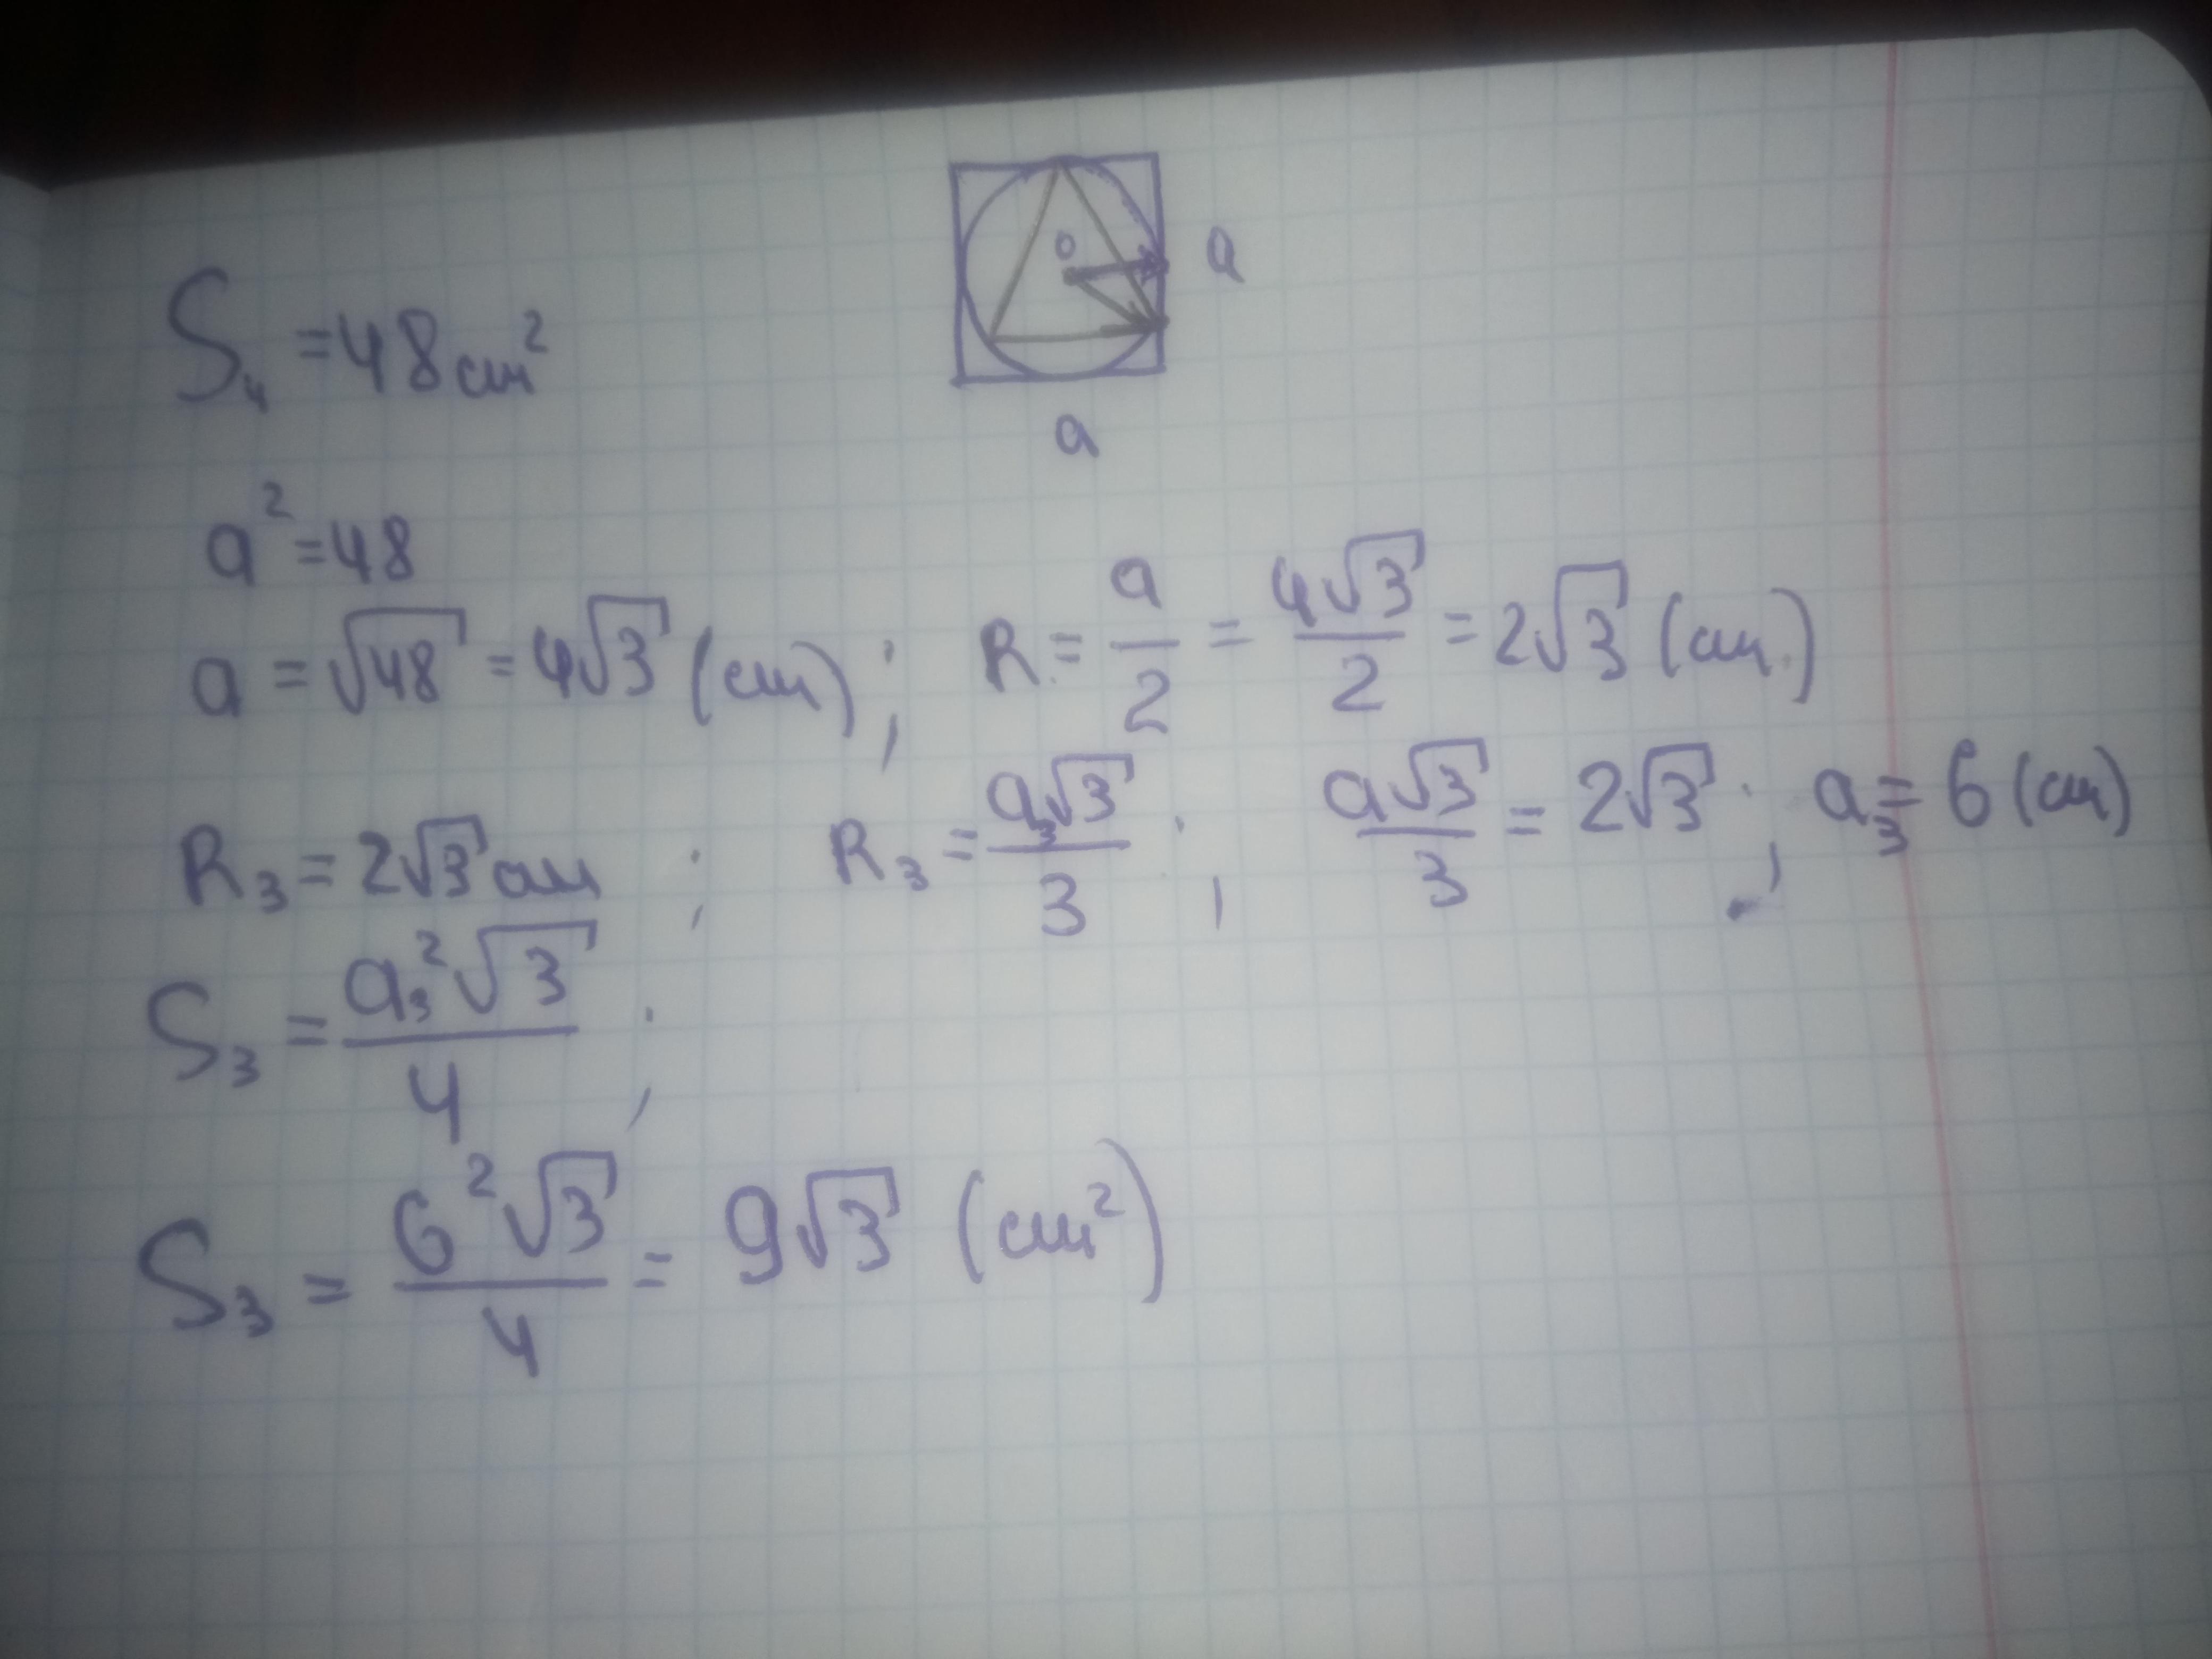 o
a
S₄ = 48 см²
a
a² = 48
a = √48 = 4√3 (см); R = a/2 = 4√3/2 = 2√3 (см)
R₃ = 2√3 см; R₃ = a₃√3/3; a√3/3 = 2√3; a₃ = 6 (см)
S₃ = a₃²√3/4;
S₃ = 6²√3/4 = 9√3 (см²)